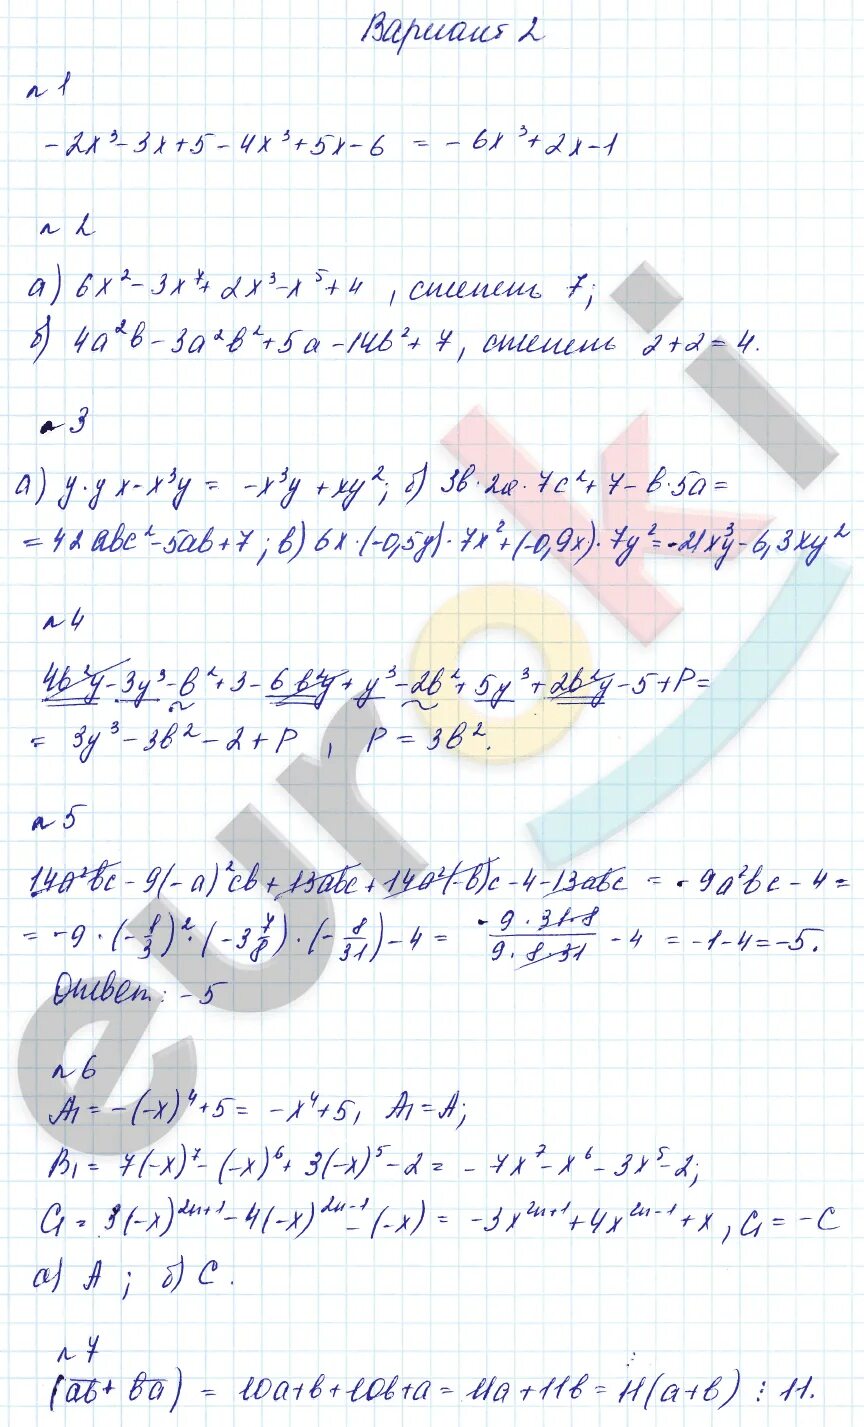 Вариант 2
n 1
-2x³-3x+5-4x³+5x-6 = -6x³+2x-1
n 2
а) 6x²-3x⁷+2x³-x⁵+4 , степень 7;
б) 4a²b-3a²b²+5a-14b²+7, степень 2+2=4.
n 3
а) y·yx-x³y = -x³y+xy²; б) 3b·2a·7c²+7-b·5a=
=42abc²-5ab+7; в) 6x·(-0,5y)·7x²+(-0,9x)·7y²=-21x³y-6,3xy²
n 4
4b²y-3y³-b²+3-6b²y+y³-2b²+5y³+2b²y-5+P=
= 3y³-3b²-2+P , P=3b².
n 5
14a²bc-9(-a)²cb+13abc+14a²(-b)c-4-13abc = -9a²bc-4=
= -9·(-1/3)²·(-3 7/8)·(-8/31)-4 = -9·31·8/9·8·31 -4 = -1-4=-5.
Ответ: -5
n 6
A₁=-(-x)⁴+5= -x⁴+5, A₁=A;
B₁= 7(-x)⁷-(-x)⁶+3(-x)⁵-2= -7x⁷-x⁶-3x⁵-2;
C₁= 3(-x)²ⁿ⁺¹-4(-x)²ⁿ⁻¹-(-x) = -3x²ⁿ⁺¹+4x²ⁿ⁻¹+x, C₁=-C
а) A ; б) C.
n 7
(ab+ba) = 10a+b+10b+a=11a+11b=11(a+b) ⋮ 11.
euroki